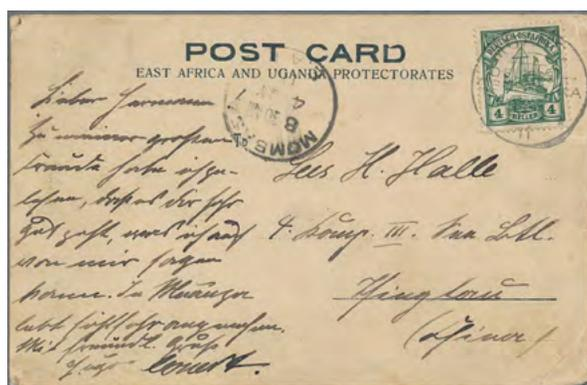 POST CARD
EAST AFRICA AND UGANDA PROTECTORATES
DEUTSCH-OSTAFRIKA
4 HELLER 4
MOMBASA
Lieber Hermann
Zu meiner großen
Freude habe ich ge-
lesen, daß es dir sehr
gut geht, was ich auch
von mir sagen
kann. In Muanza
lebt sich's sehr angenehm.
Mit freundl. Gruß
Sees. H. Halle
4. Komp. III. See Btl.
Tsingtau
(China)